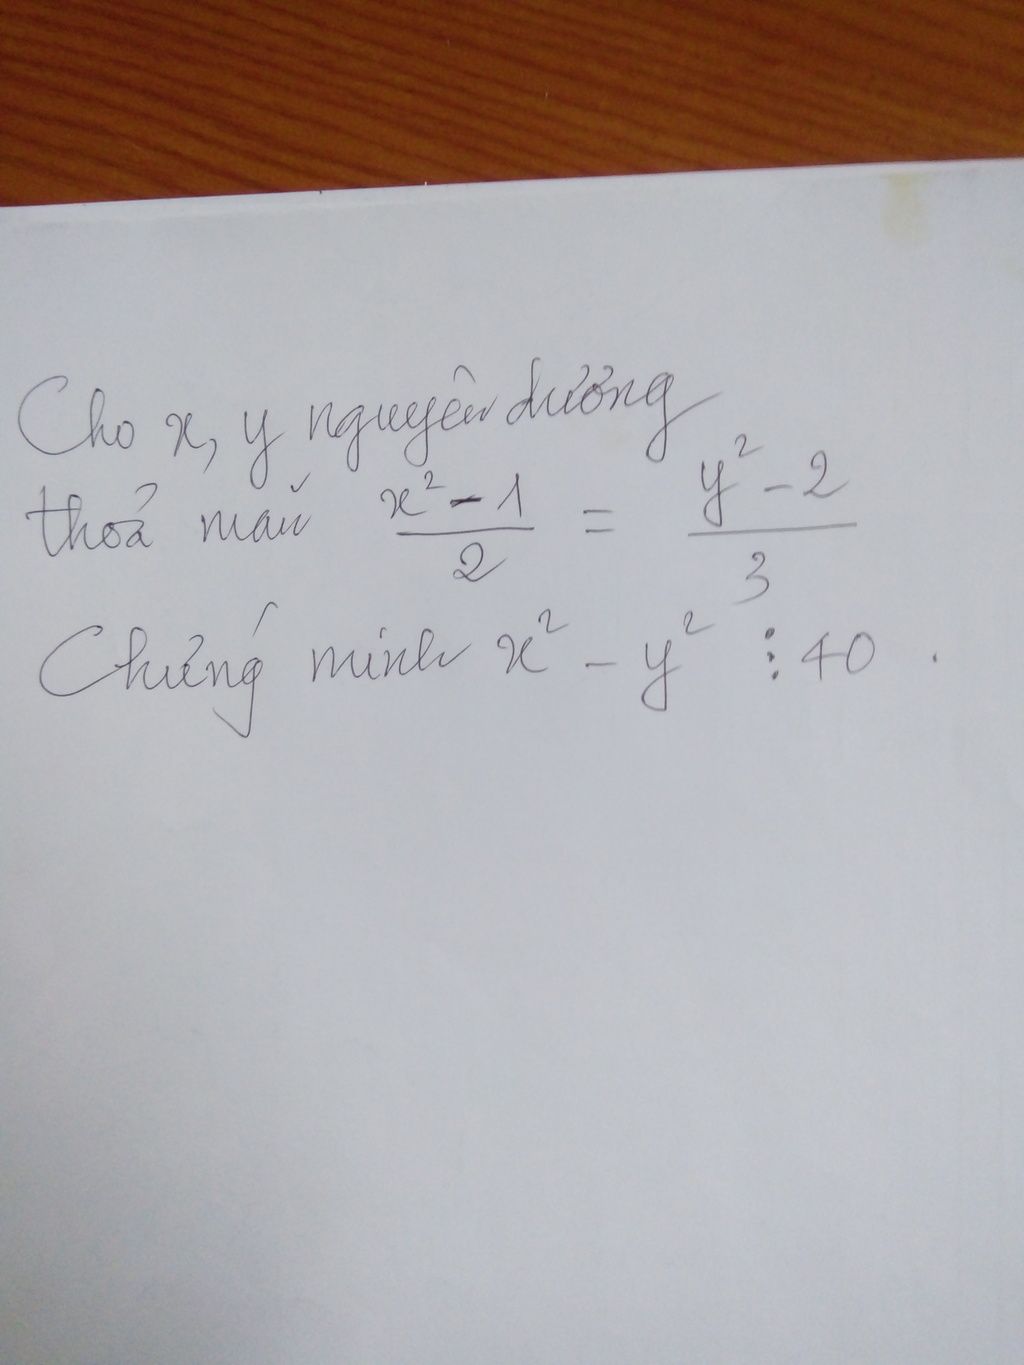 Cho x, y nguyên dương
thoả mãn \frac{x^2 - 1}{2} = \frac{y^2 - 2}{3}
Chứng minh x^2 - y^2 ⋮ 40 .